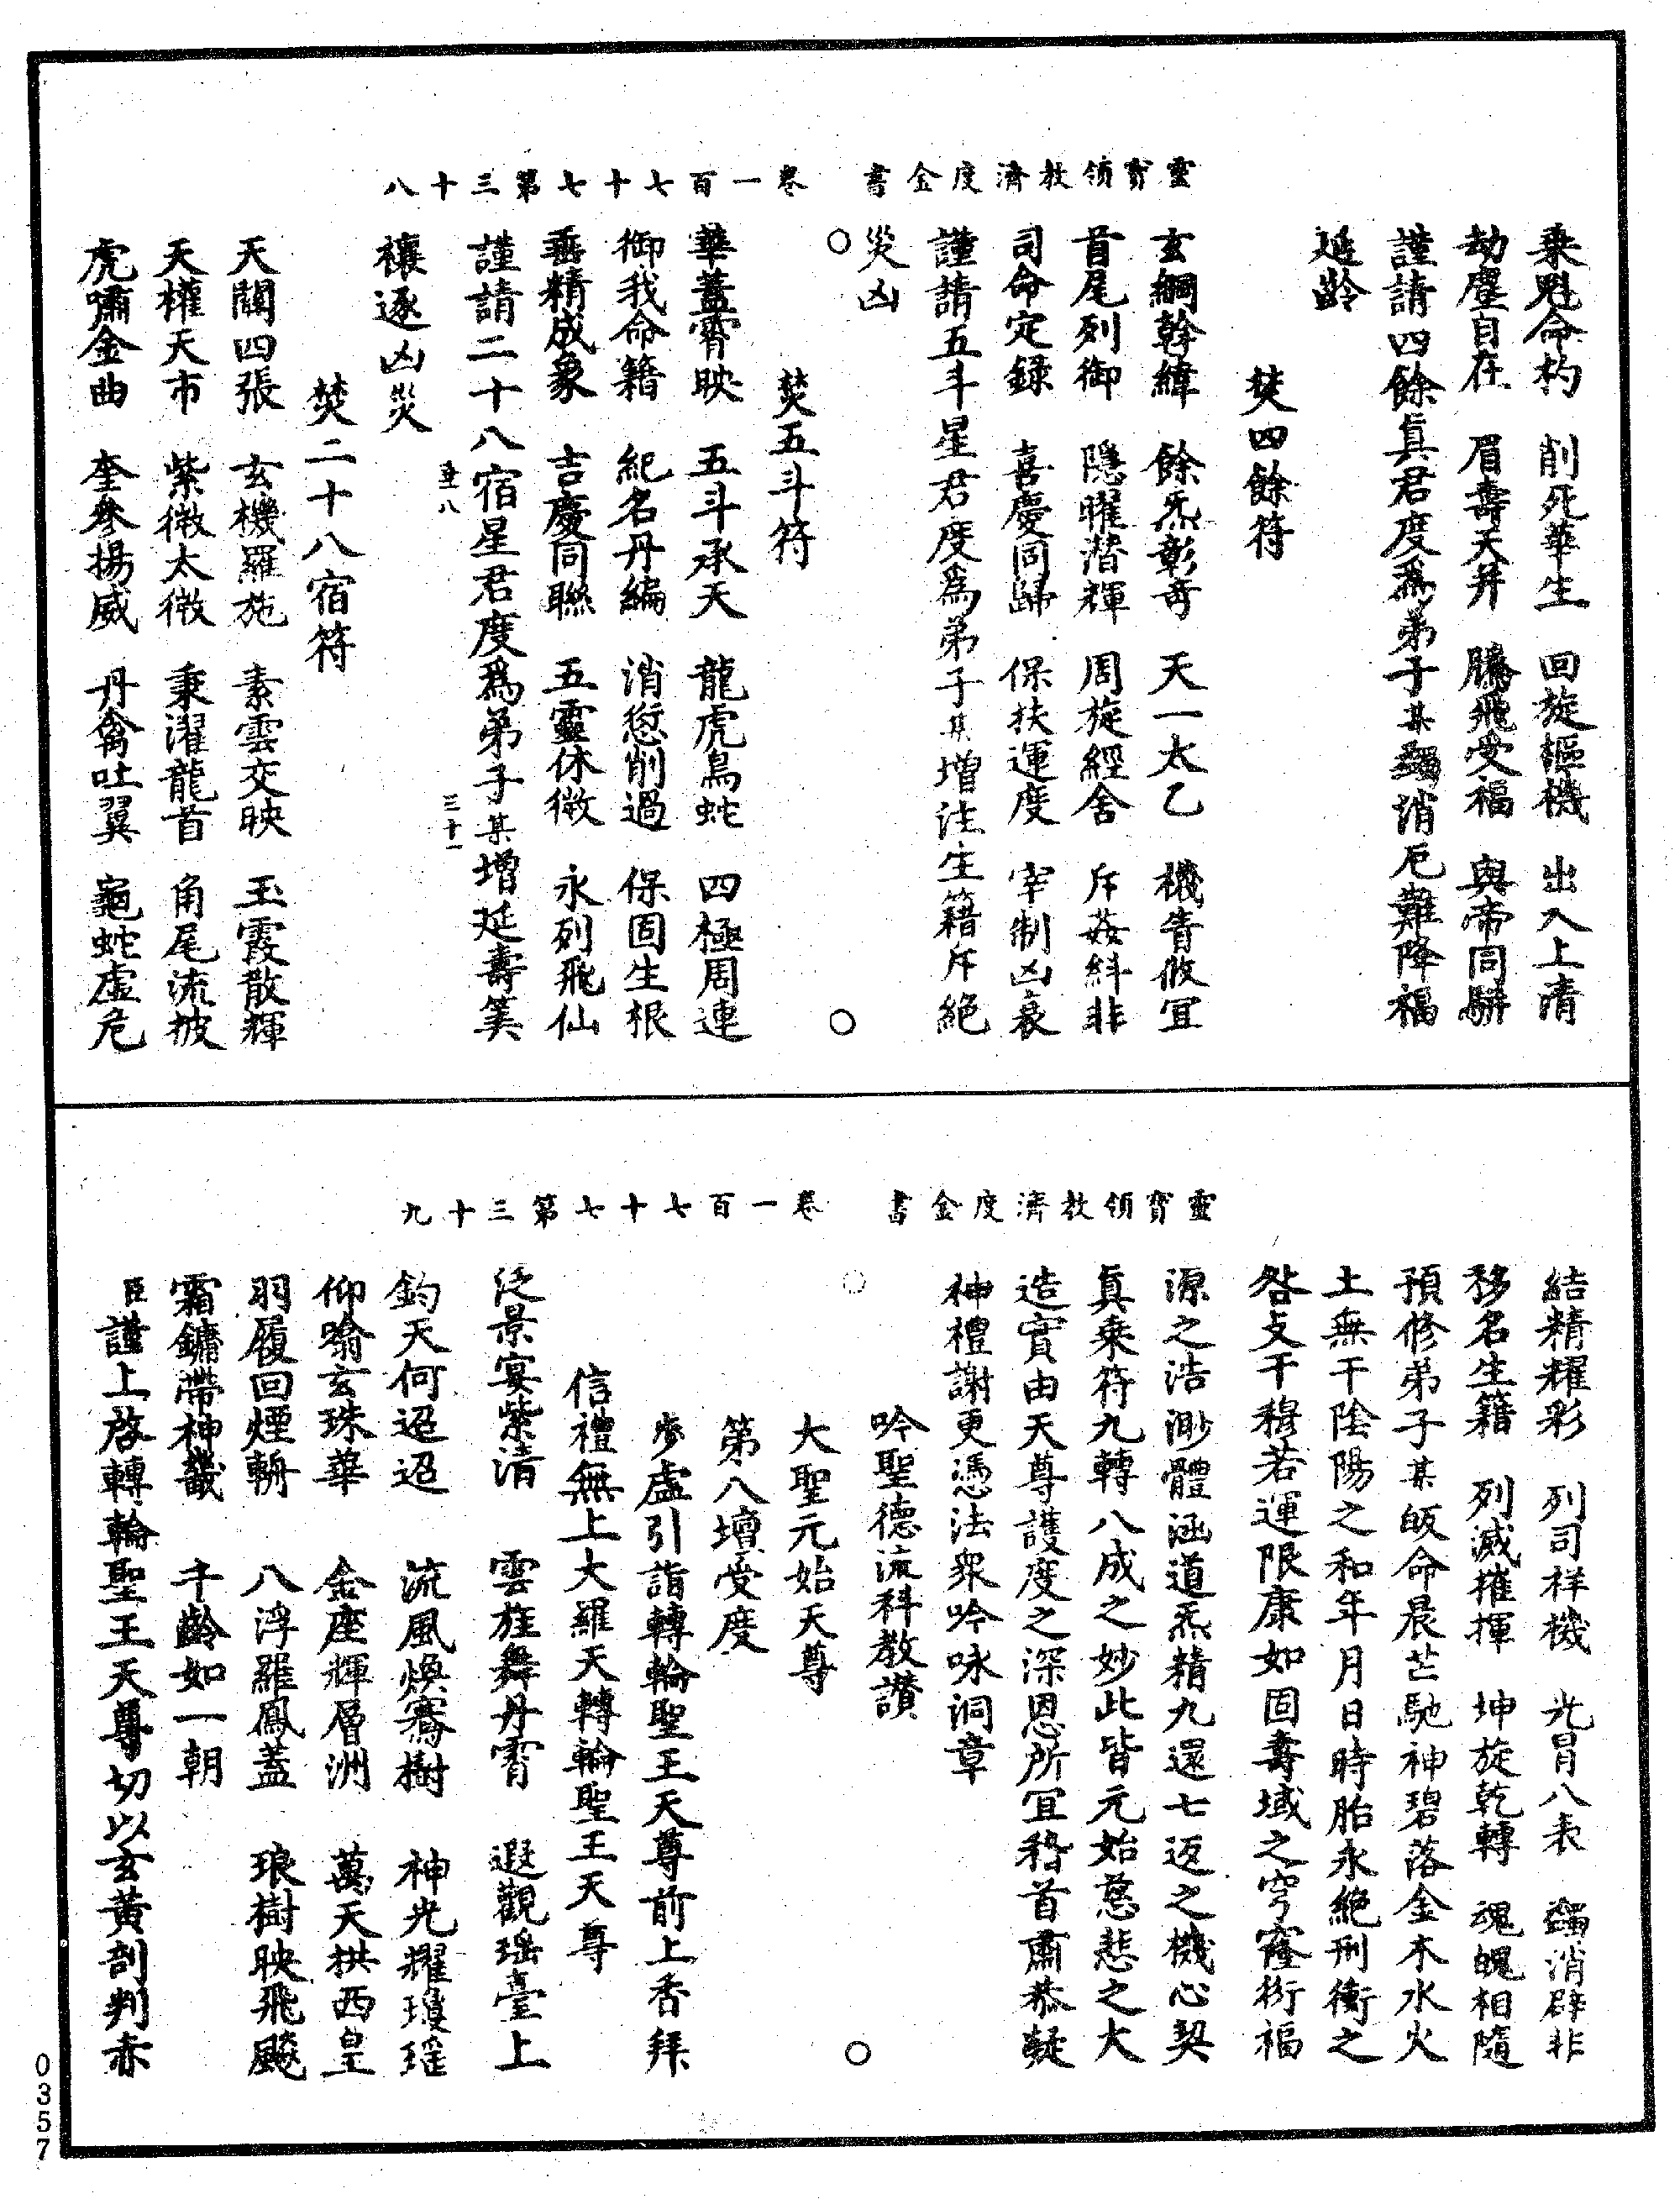 靈寶領教濟度金書　卷一百七十七第三十八
乘魁命杓　削死華生　回旋樞機　出入上清
劫塵自在　眉壽天并　騰飛受福　與帝同騈
謹請四餘真君度為弟子某蠲消厄難降福
延齡
焚四餘符
玄綱幹緯　餘炁彰奇　天一太乙　機眚攸宜
首尾列御　隱曜潛輝　周旋經舍　斥姦糾非
司命定錄　喜慶同歸　保扶運度　宰制凶衰
謹請五斗星君度為弟子某增注生籍斥絕
災凶
焚五斗符
華蓋霄映　五斗承天　龍虎鳥蛇　四極周連
御我命籍　紀名丹編　消愆削過　保固生根
垂精成象　吉慶同聯　五靈休徵　永列飛仙
謹請二十八宿星君度為弟子某增延壽筭
禳逐凶災
三十一
焚二十八宿符
天關四張　玄機羅施　素雲交映　玉霞散輝
天權天市　紫微太微　秉濯龍首　角尾流披
虎嘯金曲　奎參揚威　丹禽吐翼　龜蛇虛危
靈寶領教濟度金書　卷一百七十七第三十九
結精耀彩　列司祥機　光冐八表　蠲消辟非
移名生籍　列滅摧揮　坤旋乾轉　魂魄相隨
預修弟子某皈命晨芒馳神碧落金木水火
土無干陰陽之和年月日時胎永絕刑衝之
咎支干穆若運限康如固壽域之穹窿衍福
源之浩渺體涵道炁精九還七返之機心契
真乘符九轉八成之妙此皆元始慈悲之大
造實由天尊護度之深恩所宜稽首肅恭凝
神禮謝更憑法衆吟咏洞章
吟聖德流科教讚
大聖元始天尊
第八壇受度
步虛引詣轉輪聖王天尊前上香拜
信禮無上大羅天轉輪聖王天尊
泛景宴紫清　雲旌舞丹霄　遐觀瑤臺上
鈞天何迢迢　流風煥騫樹　神光耀瓊瑤
仰噏玄珠華　金座輝層洲　萬天拱西皇
羽履回煙輈　八浮羅鳳蓋　琅樹映飛飈
霜鏽帶神畿　千齡如一朝
臣謹上啓轉輪聖王天尊切以玄黃剖判赤
0357